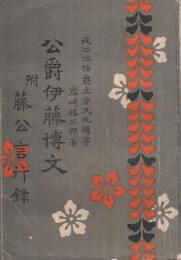 二位伯爵土方久元題字
崎勝三郎著
公爵伊藤博文
附
藤公言行録